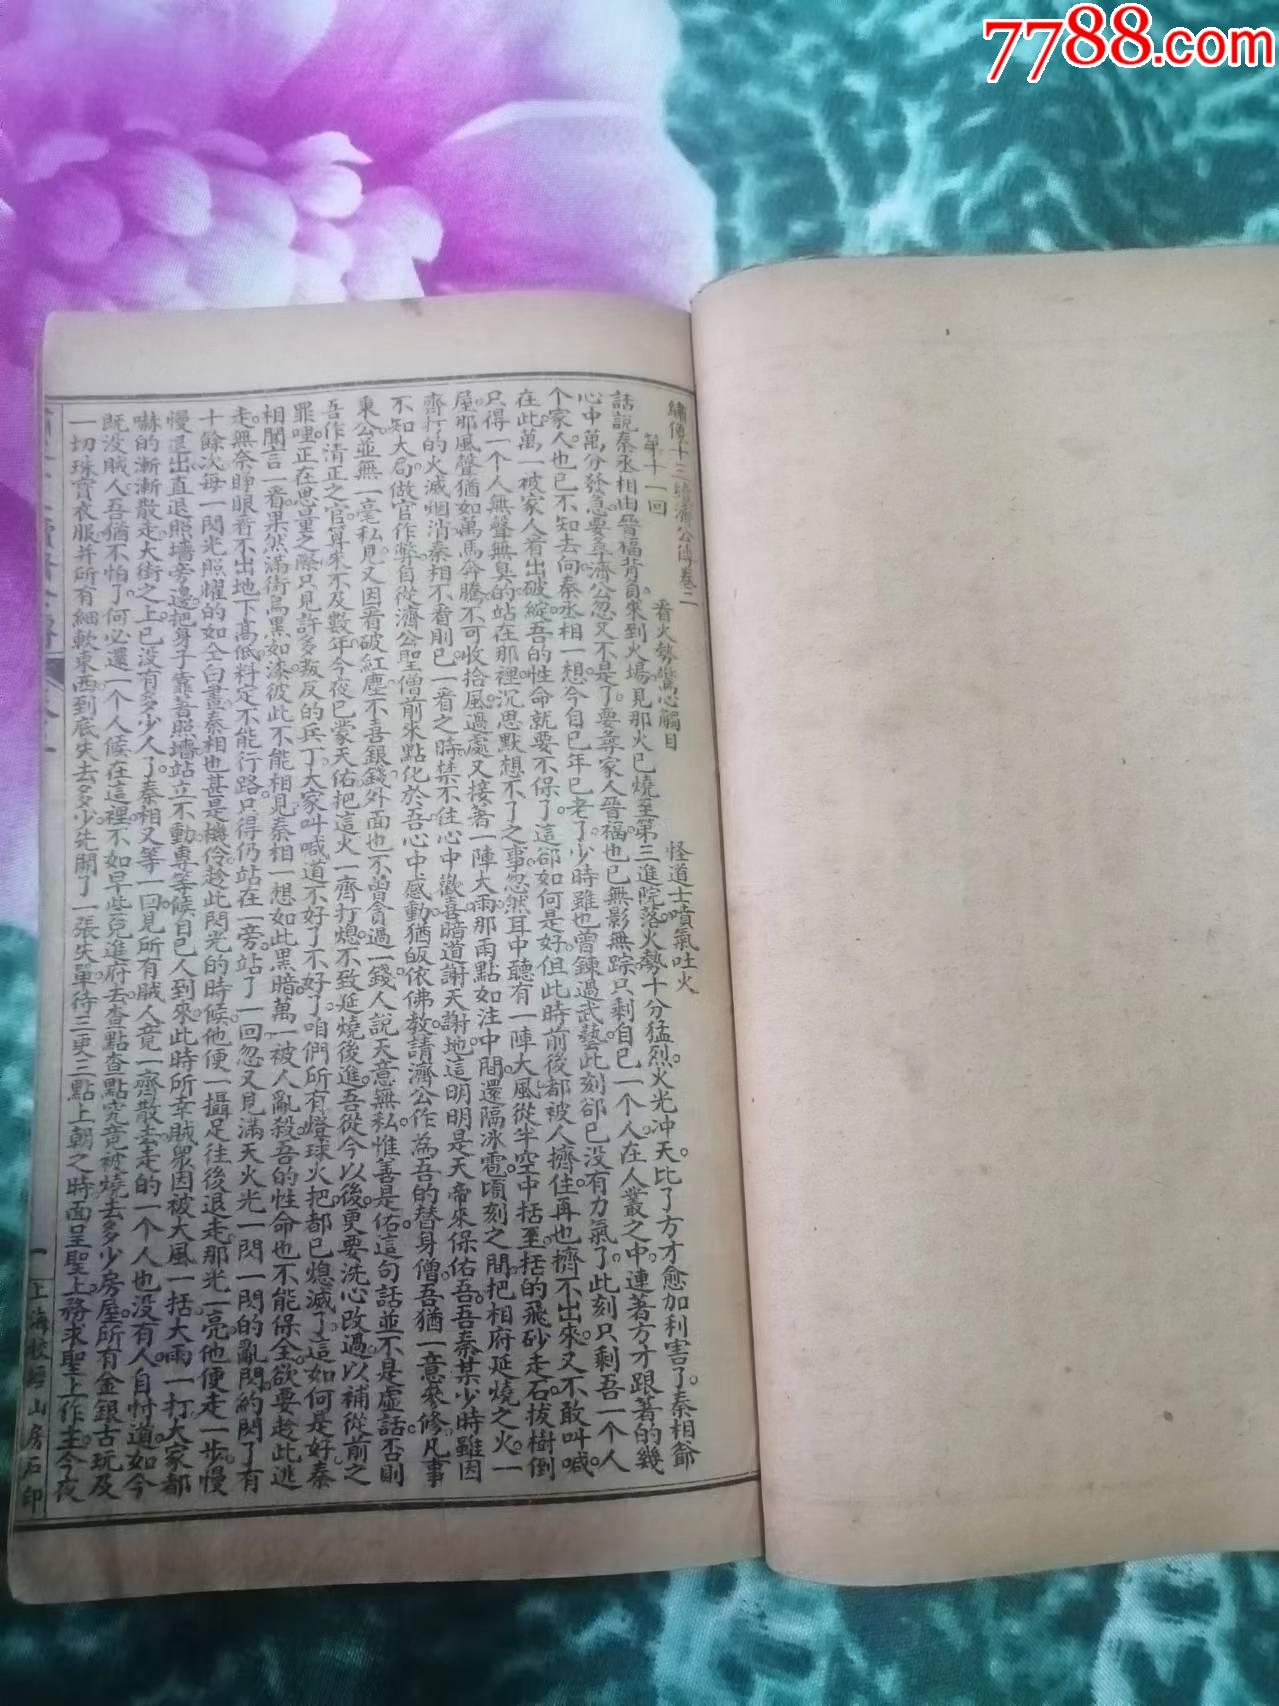 7788.com
繡像十三續濟公傳卷二
第十一回 看火勢驚心觸目 怪道士噴氣吐火
話說秦丞相由晉福背負來到火場見那火已燒至第三進院落火勢十分猛烈火光冲天比了方才愈加利害了秦相爺
心中萬分發急要尋濟公忽又不是了要尋家人晉福也已無影無踪只剩自己一個人在人叢之中連著方才跟著的幾
個家人也已不知去向秦丞相一想今自己年已老了少時雖也曾鍊過武藝此刻郤已没有力氣了此刻只剩吾一個人
在此萬一被家人看出破綻吾的性命就要不保了這郤如何是好但此時前後都被人擠住再也擠不出來又不敢叫喊
只得一個人無聲無臭的站在那裡沉思默想不了之事忽然耳中聽有一陣大風從半空中括至括的飛砂走石拔樹倒
屋那風聲猶如萬馬奔騰不可收拾風過處又接著一陣大雨那雨點如注中間還隔冰雹頃刻之間把相府延燒之火一
齊打的火滅烟消秦相不看則已一看之時禁不住心中歡喜暗道謝天謝地這明明是天帝來保佑吾吾秦某少時雖因
不知大局做官作弊自從濟公聖僧前來點化於吾心中感動猶皈依佛教請濟公作爲吾的替身僧吾猶一意參修凡事
秉公並無一毫私見又因看破紅塵不喜銀錢外面也不曾貪過一錢人說天意無私惟善是佑這句話並不是虛話否則
吾作清正之官算來不及數年今夜已蒙天佑把這火一齊打熄不致延燒後進吾從今以後更要洗心改過以補從前之
罪哩正在思量之際只見許多叛反的兵丁大家叫喊道不好了不好了咱們所有燈球火把都已熄滅了這如何是好秦
相聞言一看果然滿街烏黑如漆彼此不能相見秦相一想如此黑暗萬一被人亂殺吾的性命也不能保全欲要趁此逃
走無奈睜眼看不出地下高低料定不能行路只得仍站在一旁站了一回忽又見滿天火光一閃一閃的亂閃約閃了有
十餘次每一閃光照耀的如仝白晝秦相也甚是機伶趁此閃光的時候他便一攝足往後退走那光一亮他便走一步慢
慢退出直退照墻旁邊把身子靠著照墻站立不動專等候自己人到來此時所幸賊眾因被大風一括大雨一打大家都
嚇的漸漸散走大街之上已没有多少人了秦相又等一回見所有賊人竟一齊散去走的一個人也没有人自忖道如今
既没賊人吾猶不怕了何必還一個人候在這裡不如早些克進府去查點查點究竟被燒去多少房屋所有金銀古玩及
一切珠寶衣服并所有細軟東西到底失去多少先開了一張失單待三更三點上朝之時面呈聖上務求聖上作主今夜
續濟公傳
一
上海校經山房石印